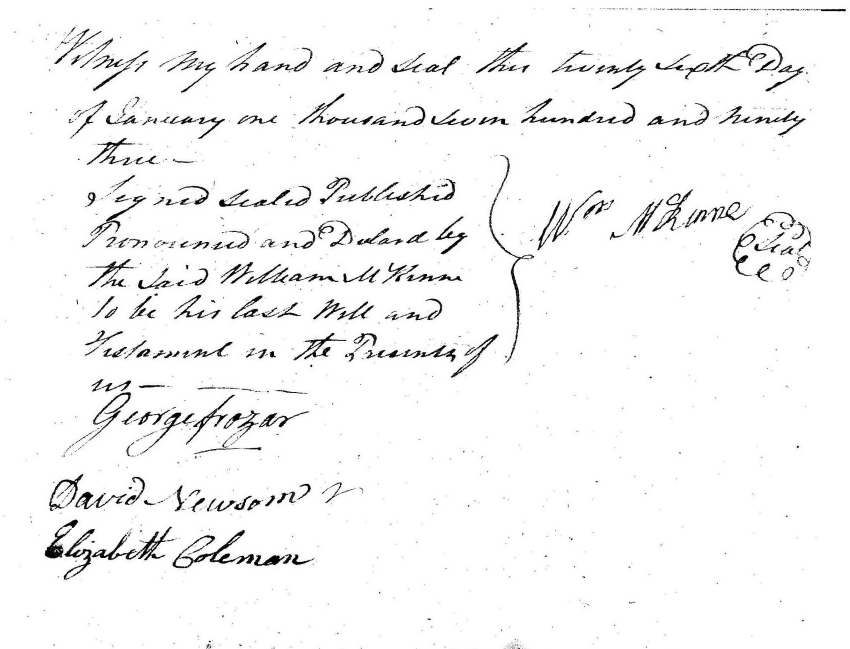 Witness my hand and seal this twenty sixth Day
of January one thousand seven hundred and ninety
three —
Signed sealed Published
Pronounced and Delard by
the said William McKinne
to be his last Will and
Testament in the Presents of
us —
Wm McKinne
Seal
George frozar
David Newsom
Elizabeth Coleman